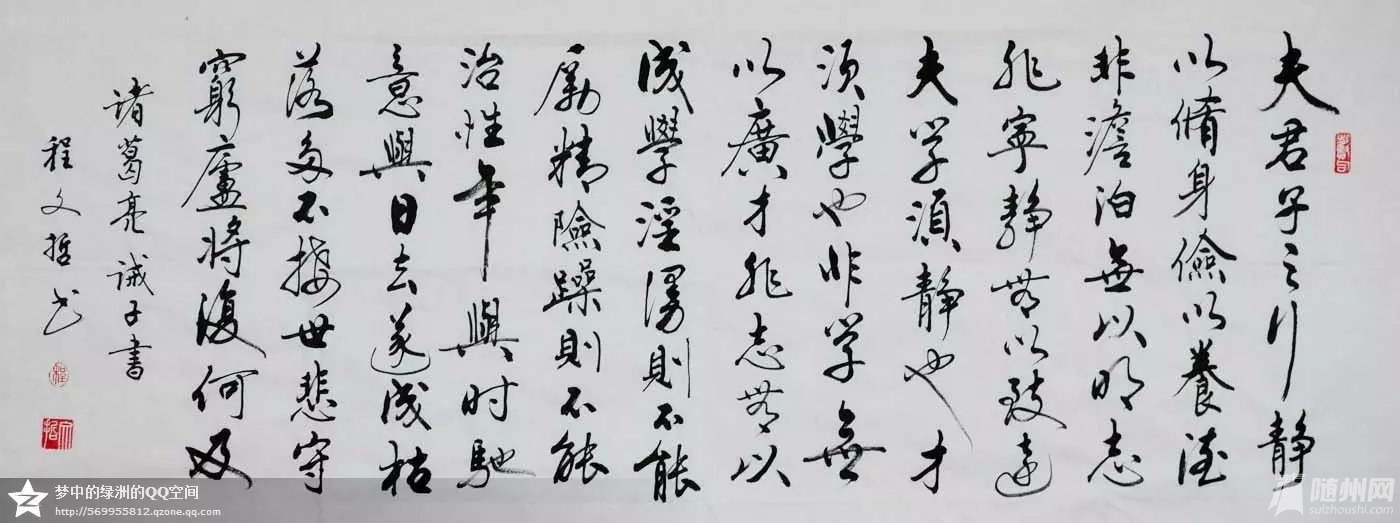 夫君子之行静
以脩身儉以養德
非澹泊無以明志
非寧静無以致遠
夫学須静也才
須學也非学無
以廣才非志無以
成學淫漫則不能
勵精險躁則不能
治性年與时馳
意與日去遂成枯
落多不接世悲守
窮廬將復何及
诸葛亮诫子書
程文哲书
梦中的绿洲的QQ空间
http://569955812.qzone.qq.com
随州网
suizhoushi.com